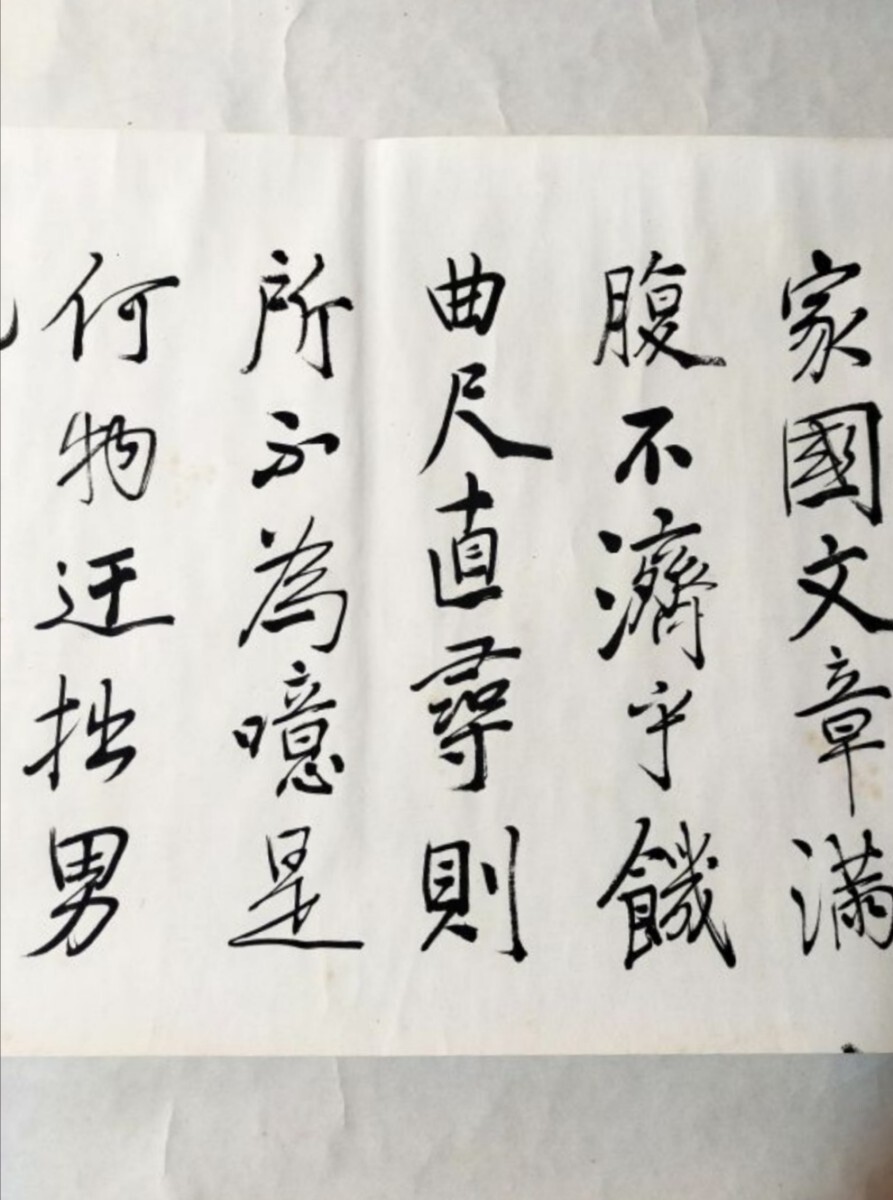 家國文章滿
腹不濟乎饑
曲尺直尋則
所不為噫是
何物迂拙男